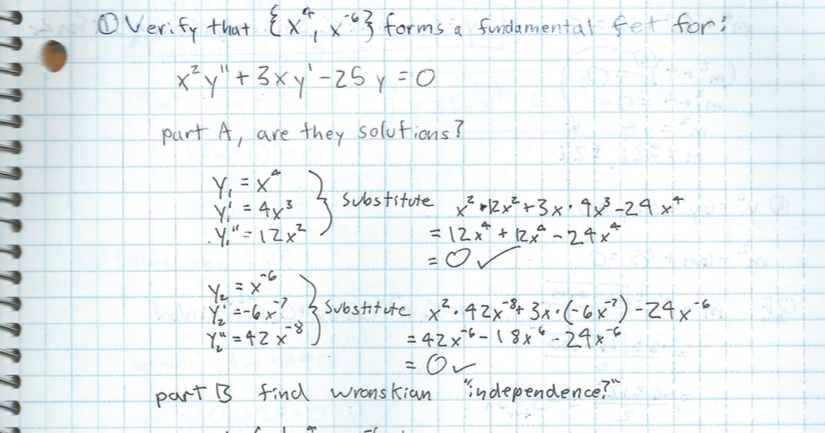 ① Verify that {x⁴, x⁻⁶} forms a fundamental set for:
x²y" + 3xy' - 25y = 0
part A, are they solutions?
y₁ = x⁴
y₁' = 4x³
y₁" = 12x²
} Substitute x² • 12x² + 3x · 4x³ - 24x⁴
= 12x⁴ + 12x⁴ - 24x⁴
= 0 ✓
y₂ = x⁻⁶
y₂' = -6x⁻⁷
y₂" = 42x⁻⁸
} Substitute x² · 42x⁻⁸ + 3x · (-6x⁻⁷) - 24x⁻⁶
= 42x⁻⁶ - 18x⁻⁶ - 24x⁻⁶
= 0 ✓
part B find wronskian "independence?"